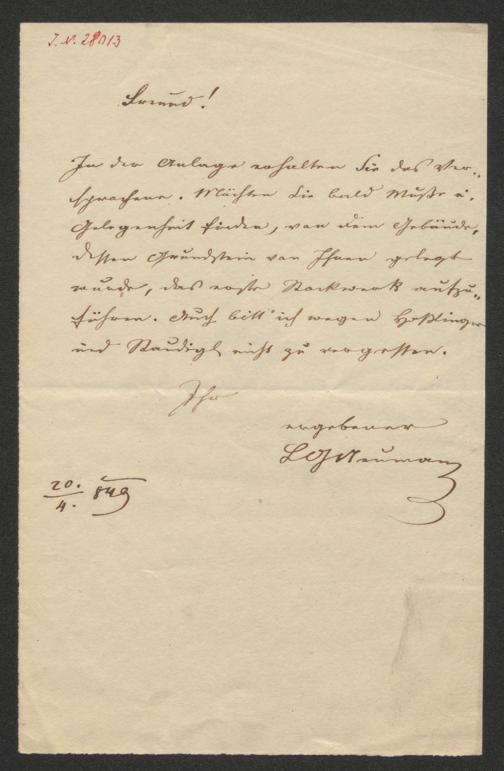 J. N. 28013
Freund!
In der Anlage erhalten Sie das Ver-
sprochene. Möchten Sie bald Muße u.
Gelegenheit finden, von dem Gebäude,
dessen Grundstein von Ihnen gelegt
wurde, das erste Stockwerk aufzu-
führen. Auch bitt' ich wegen
und Staudigl nicht zu vergessen.
Ihr
ergebener
LGNeumann
20./4. 849